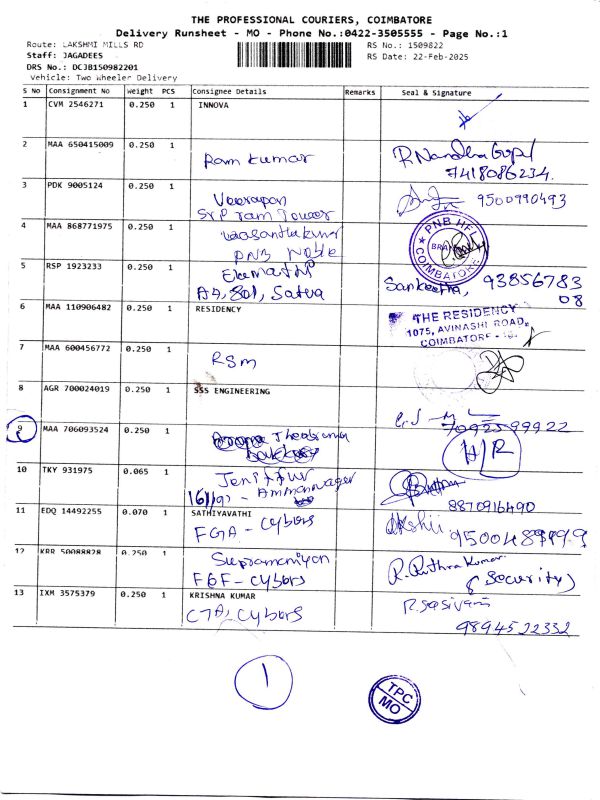 THE PROFESSIONAL COURIERS, COIMBATORE
Delivery Runsheet - MO - Phone No.:0422-3505555 - Page No.:1
Route: LAKSHMI MILLS RD RS No.: 1509822
Staff: JAGADEES RS Date: 22-Feb-2025
DRS No.: DCJB150982201
Vehicle: Two Wheeler Delivery
S No Consignment No Weight PCS Consignee Details Remarks Seal & Signature
1 CVM 2546271 0.250 1 INNOVA
2 MAA 650415009 0.250 1 Ram kumar R. Nandha Gopl
7418086234.
3 PDK 9005124 0.250 1 Veerapan 9500990493
SrP ram Tower
4 MAA 868771975 0.250 1 Vaasanthakumar PNB HFL
PNB BRA
COIMBATORE
5 RSP 1923233 0.250 1 Sankeetha, 93856783
A5, 801, Satva 08
6 MAA 110906482 0.250 1 RESIDENCY THE RESIDENCY
1075, AVINASHI ROAD,
COIMBATORE - 18.
7 MAA 600456772 0.250 1 RSM
8 AGR 700024019 0.250 1 SSS ENGINEERING
9 MAA 706093524 0.250 1 7092599922
H/R
10 TKY 931975 0.065 1 Jeniffur
Ammannager 8870916490
11 EDQ 14492255 0.070 1 SATHIYAVATHI
FGA - Cybors
12 KRR 50088828 0.250 1 Supramaniyan R. Ruthra Kumar.
FBF - Cybors (Security)
13 IXM 3575379 0.250 1 KRISHNA KUMAR R. Sasivani
CTA, Cybors 9894522332
1
TPC
MO